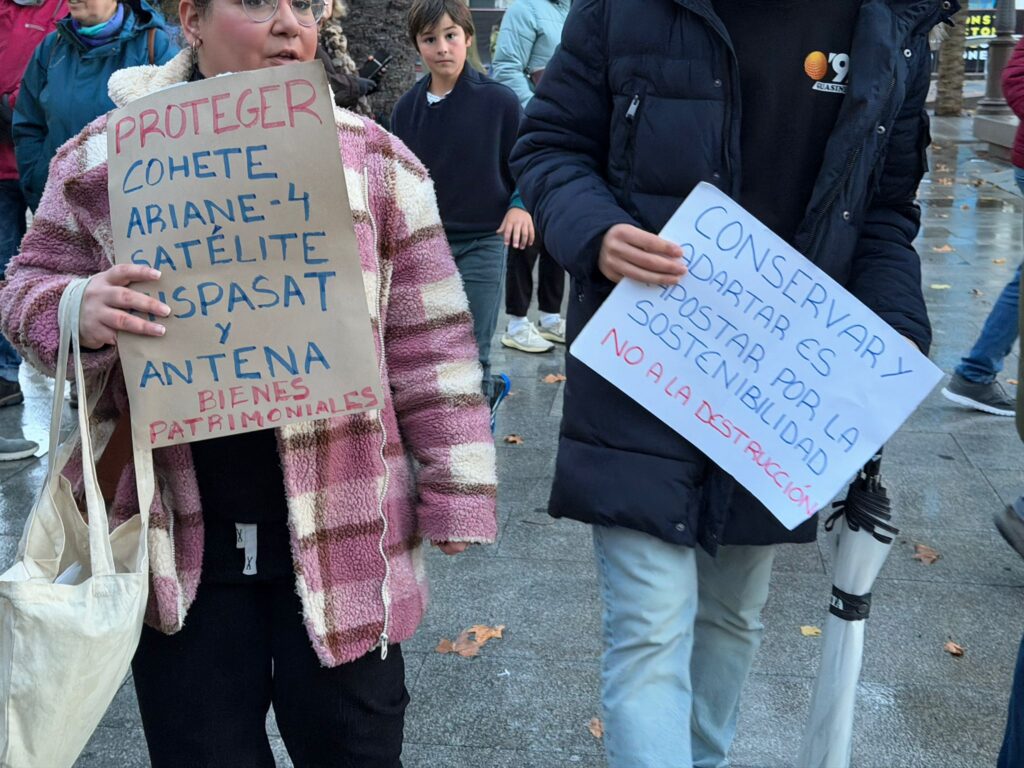 PROTEGER
COHETE
ARIANE-4
SATÉLITE
HISPASAT
y
ANTENA
BIENES
PATRIMONIALES
CONSERVAR y
ADARTAR ES
APOSTAR POR LA
SOSTENIBILIDAD
NO A LA DESTRUCCIÓN
'9